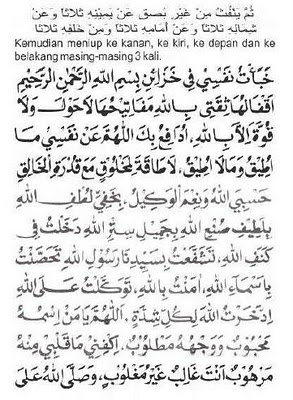 ثُمَّ يَنْفُثُ مِنْ غَيْرِ بَصْقٍ عَنْ يَمِيْنِهِ ثَلَاثًا وَعَنْ
شِمَالِهِ ثَلَاثًا وَعَنْ أَمَامِهِ ثَلَاثًا وَمِنْ خَلْفِهِ ثَلَاثًا
Kemudian meniup ke kanan, ke kiri, ke depan dan ke
belakang masing-masing 3 kali.
خَبَأْتُ نَفْسِيْ فِيْ خَزَائِنِ بِسْمِ اللهِ الرَّحْمٰنِ الرَّحِيْمِ
اَقْفَالُهَا ثِقَتِيْ بِاللهِ مَفَاتِيْحُهَا لَاحَوْلَ وَلَا
قُوَّةَ اِلَّا بِاللهِ، اُدَافِعُ بِكَ اللّٰهُمَّ عَنْ نَفْسِيْ مَا
اُطِيْقُ وَمَا لَا اُطِيْقُ، لَاطَاقَةَ لِمَخْلُوْقٍ مَعَ قُدْرَةِ الْخَالِقِ
حَسْبِيَ اللهُ وَنِعْمَ الْوَكِيْلُ، بِخَفِيِّ لُطْفِ اللهِ
بِلَطِيْفِ صُنْعِ اللهِ بِجَمِيْلِ سِتْرِ اللهِ دَخَلْتُ فِيْ
كَنَفِ اللهِ، تَشَفَّعْتُ بِسَيِّدِنَا رَسُوْلِ اللهِ تَحَصَّنْتُ
بِاَسْمَاءِ اللهِ، اٰمَنْتُ بِاللهِ، تَوَكَّلْتُ عَلَى اللهِ
اِدَّخَرْتُ اللهَ لِكُلِّ شِدَّةٍ. اَللّٰهُمَّ يَا مَنِ اسْمُهُ
مَحْبُوْبٌ وَوَجْهُهُ مَطْلُوْبٌ، اِكْفِنِيْ مَا قَلْبِيْ مِنْهُ
مَرْهُوْبٌ اَنْتَ غَالِبٌ غَيْرُ مَغْلُوْبٍ، وَصَلَّى اللهُ عَلَى